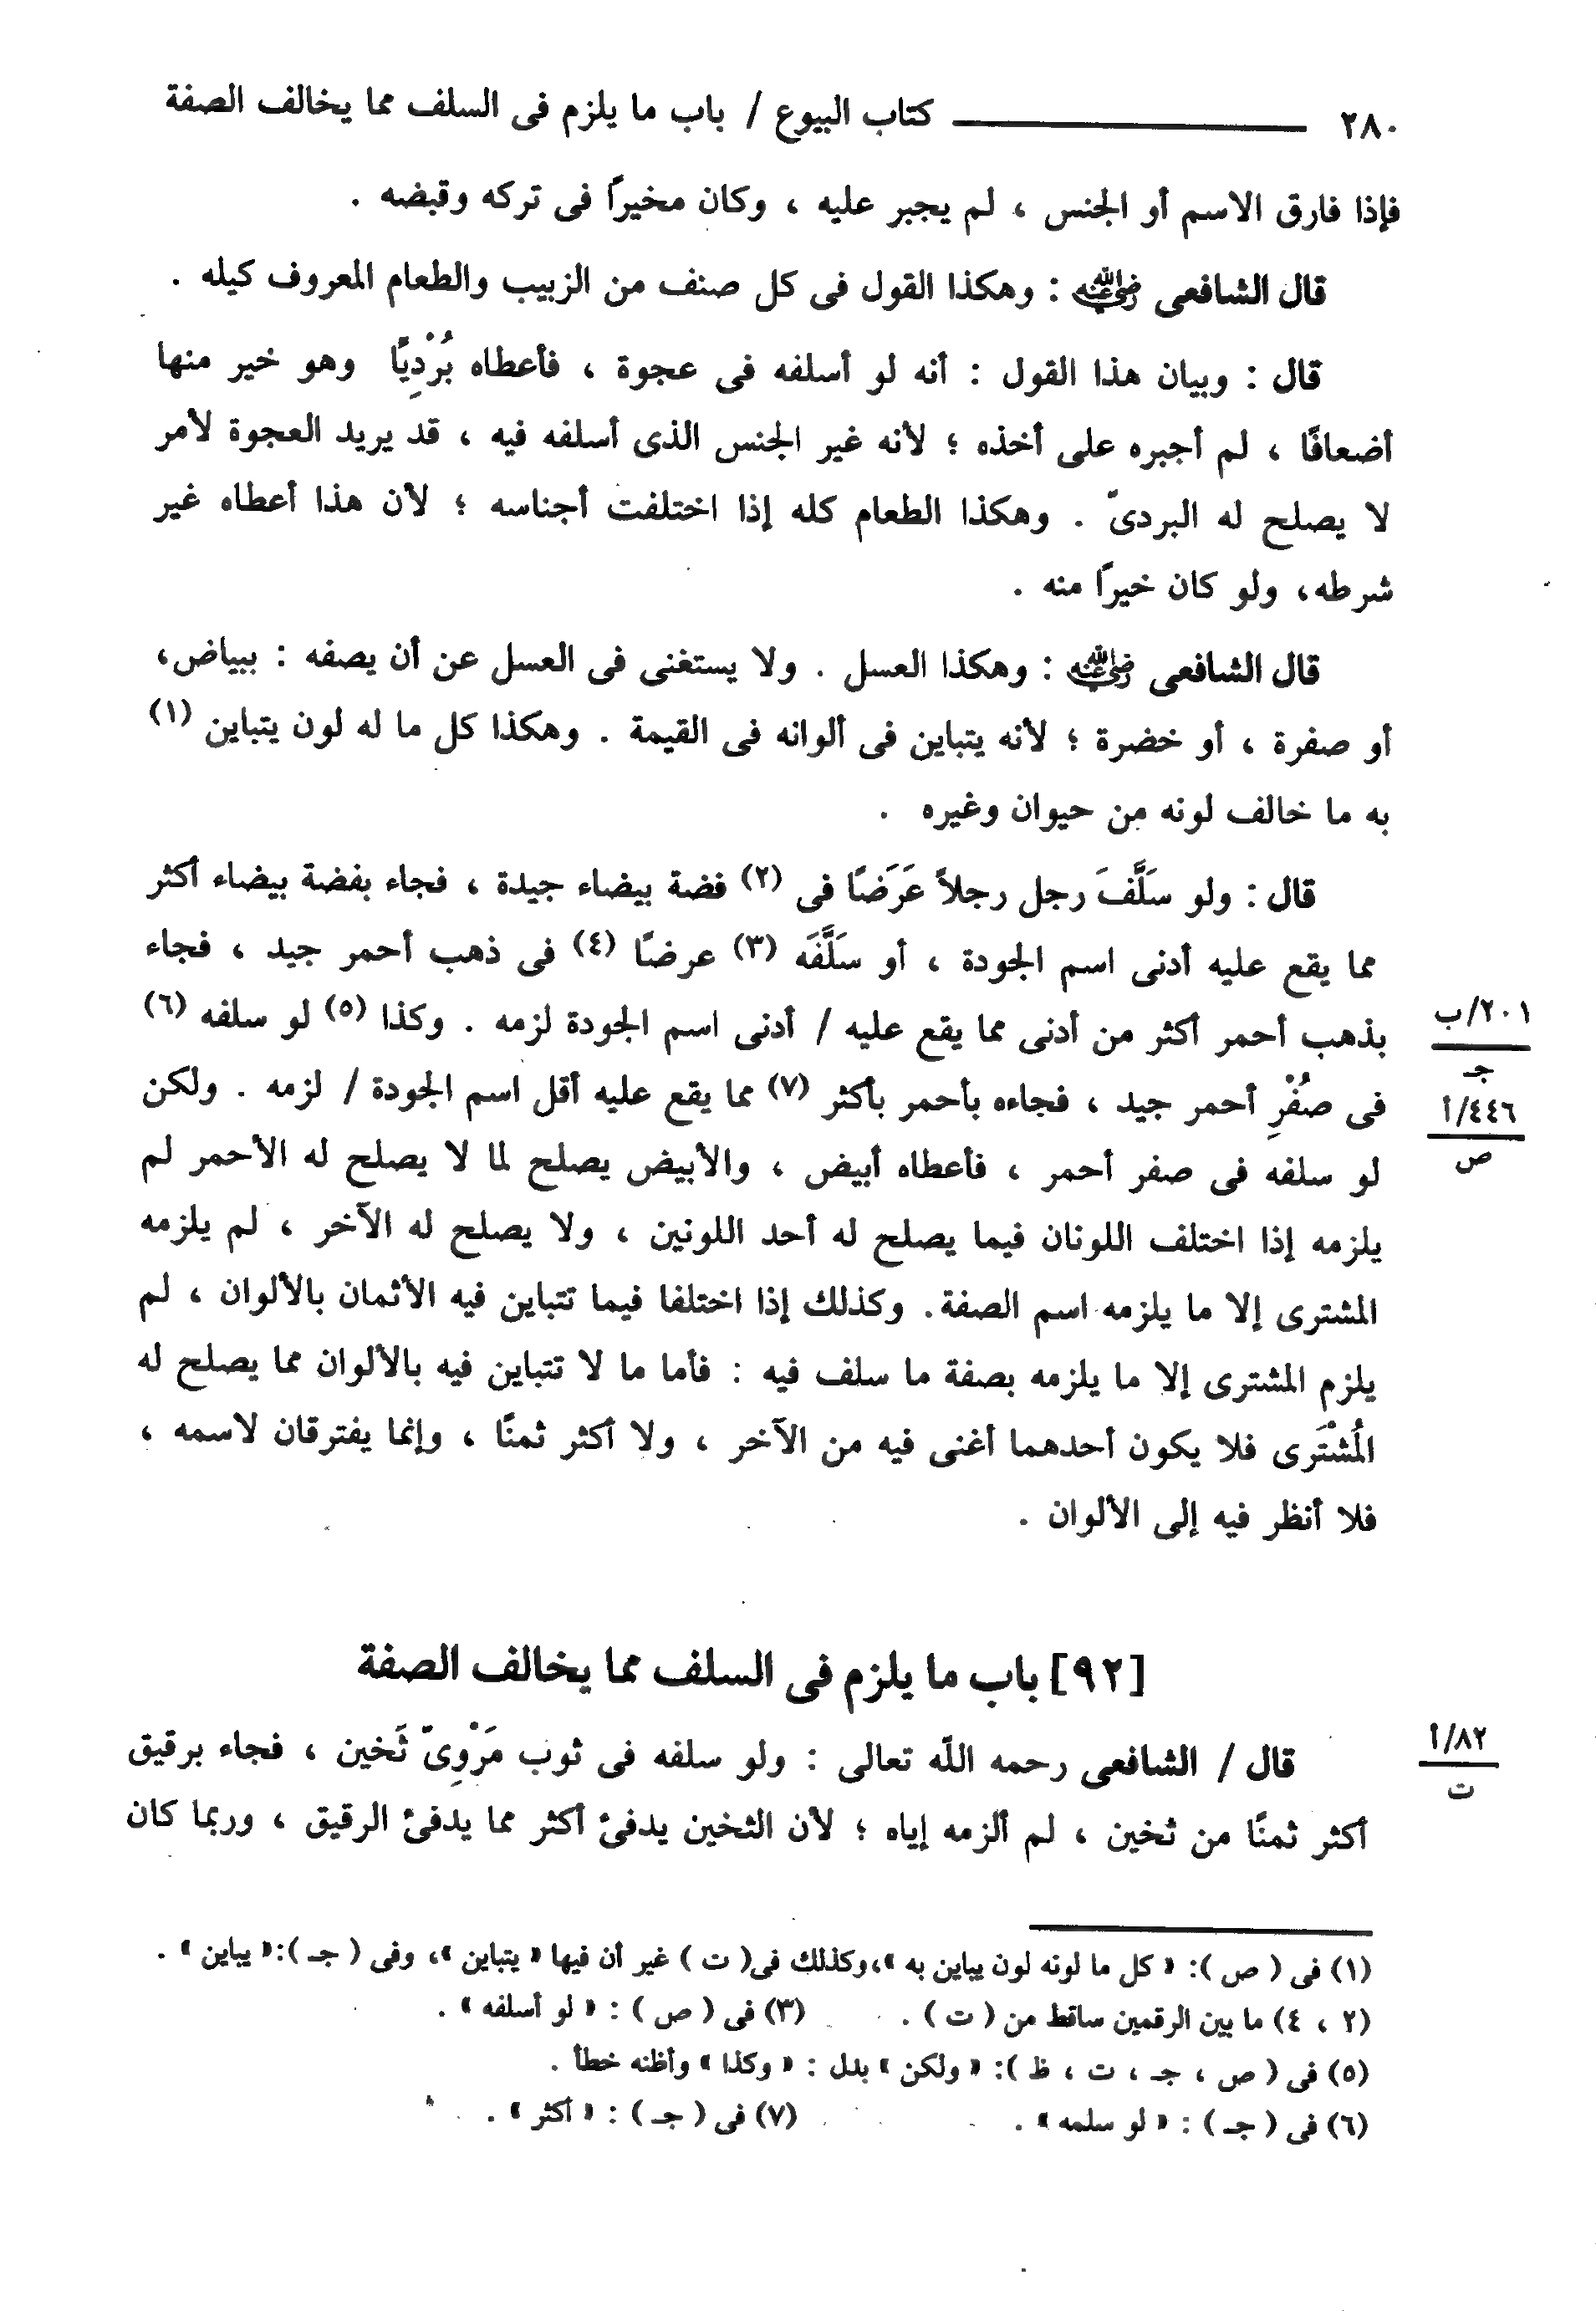 ٢٨٠ كتاب البيوع / باب ما يلزم فى السلف مما يخالف الصفة
فإذا فارق الاسم أو الجنس ، لم يجبر عليه ، وكان مخيراً فى تركه وقبضه .
قال الشافعى رضي الله عنه : وهكذا القول فى كل صنف من الزبيب والطعام المعروف كيله .
قال : وبيان هذا القول : أنه لو أسلفه فى عجوة ، فأعطاه بُرْدِيًا وهو خير منها
أضعافًا ، لم أجبره على أخذه ؛ لأنه غير الجنس الذى أسلفه فيه ، قد يريد العجوة لأمر
لا يصلح له البردىّ . وهكذا الطعام كله إذا اختلفت أجناسه ؛ لأن هذا أعطاه غير
شرطه، ولو كان خيرًا منه .
قال الشافعى رضي الله عنه : وهكذا العسل . ولا يستغنى فى العسل عن أن يصفه : ببياض،
أو صفرة ، أو خضرة ؛ لأنه يتباين فى ألوانه فى القيمة . وهكذا كل ما له لون يتباين (١)
به ما خالف لونه من حيوان وغيره .
قال : ولو سَلَّفَ رجل رجلاً عَرَضًا فى (٢) فضة بيضاء جيدة ، فجاء بفضة بيضاء أكثر
مما يقع عليه أدنى اسم الجودة ، أو سَلَّفَه (٣) عرضًا (٤) فى ذهب أحمر جيد ، فجاء
بذهب أحمر أكثر من أدنى مما يقع عليه / أدنى اسم الجودة لزمه . وكذا (٥) لو سلفه (٦)
٢٠١/ب
جـ
فى صُفْرِ أحمر جيد ، فجاءه بأحمر بأكثر (٧) مما يقع عليه أقل اسم الجودة / لزمه . ولكن
٤٤٦/أ
ص
لو سلفه فى صفر أحمر ، فأعطاه أبيض ، والأبيض يصلح لما لا يصلح له الأحمر لم
يلزمه إذا اختلف اللونان فيما يصلح له أحد اللونين ، ولا يصلح له الآخر ، لم يلزمه
المشترى إلا ما يلزمه اسم الصفة. وكذلك إذا اختلفا فيما تتباين فيه الأثمان بالألوان ، لم
يلزم المشترى إلا ما يلزمه بصفة ما سلف فيه : فأما ما لا تتباين فيه بالألوان مما يصلح له
المُشْتَرى فلا يكون أحدهما أغنى فيه من الآخر ، ولا أكثر ثمنًا ، وإنما يفترقان لاسمه ،
فلا أنظر فيه إلى الألوان .
[٩٢] باب ما يلزم فى السلف مما يخالف الصفة
قال / الشافعى رحمه اللّه تعالى : ولو سلفه فى ثوب مَرْوِىّ ثَخين ، فجاء برقيق
٨٢/أ
ت
أكثر ثمنًا من ثخين ، لم ألزمه إياه ؛ لأن الثخين يدفئ أكثر مما يدفئ الرقيق ، وربما كان
(١) فى ( ص ): « كل ما لونه لون يباين به »،وكذلك فى( ت ) غير أن فيها « يتباين »، وفى ( جـ ):« يباين » .
(٢ ، ٤) ما بين الرقمين ساقط من ( ت ) . (٣) فى ( ص ) : « لو أسلفه » .
(٥) فى ( ص ، جـ ، ت ، ظ ): « ولكن » بدل : « وكذا » وأظنه خطأ .
(٦) فى ( جـ ) : « لو سلمه » . (٧) فى ( جـ ) : « أكثر » .